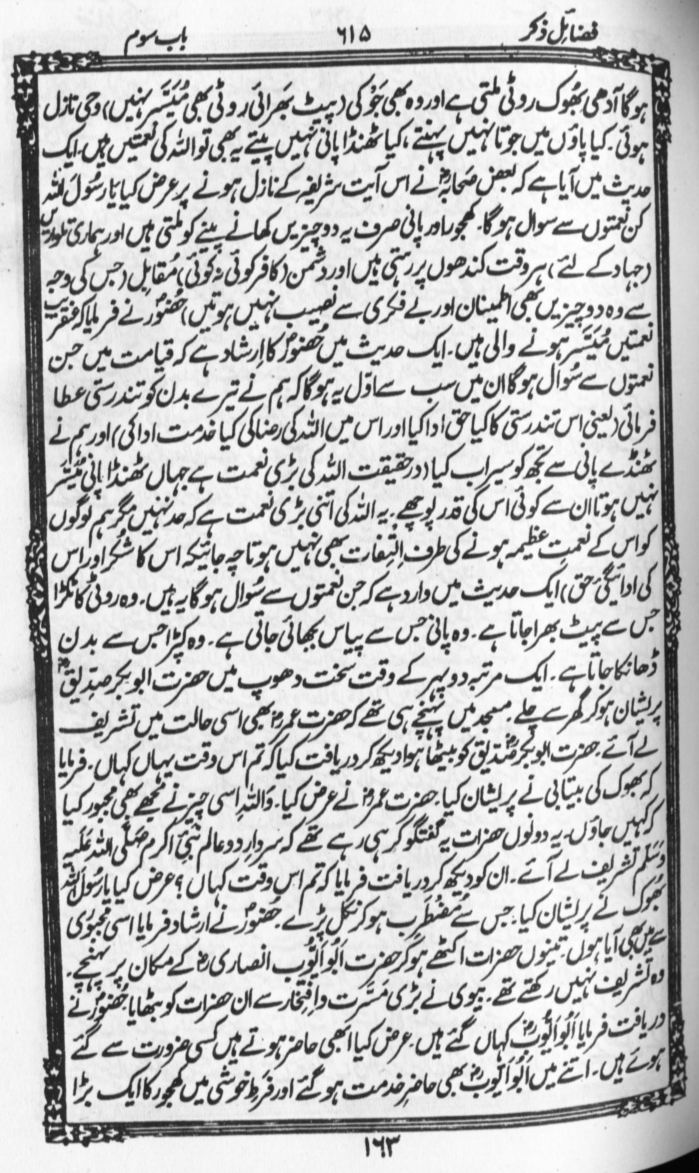 فضائل ذکر ۶۱۵ باب سوم
ہوگا آدھی بھوک روٹی ملتی ہے اور وہ بھی جَو کی (پیٹ بھرائی روٹی بھی مُیَسَّر نہیں) وحی نازل
ہوئی۔ کیا پاؤں میں جوتا نہیں پہنتے، کیا ٹھنڈا پانی نہیں پیتے یہ بھی تو اللہ کی نعمتیں ہیں۔ ایک
حدیث میں آیا ہے کہ بعض صحابہؓ نے اس آیت شریفہ کے نازل ہونے پر عرض کیا یَا رسُولَ اللہ
کن نعمتوں سے سوال ہوگا۔ کھجور اور پانی صرف یہ دو چیزیں کھانے پینے کو ملتی ہیں اور ہماری تلواریں
(جہاد کے لئے) ہر وقت کندھوں پر رہتی ہیں اور دشمن (کافر کوئی نہ کوئی) مُقابِل (جس کی وجہ
سے وہ دو چیزیں بھی اطمینان اور بے فکری سے نصیب نہیں ہوتیں) حُضورؐ نے فرمایا کہ عنقریب
نعمتیں مُیَسَّر ہونے والی ہیں۔ ایک حدیث میں حُضورؐ کا اِرشاد ہے کہ قیامت میں جن
نعمتوں سے سُوال ہوگا ان میں سب سے اوّل یہ ہوگا کہ ہم نے تیرے بدن کو تندرستی عطا
فرمائی (یعنی اس تندرستی کا کیا حق ادا کیا اور اس میں اللہ کی رضا کی کیا خدمت ادا کی) اور ہم نے
ٹھنڈے پانی سے تجھ کو سیراب کیا (درحقیقت اللہ کی بڑی نعمت ہے جہاں ٹھنڈا پانی مُیَسَّر
نہیں ہوتا ان سے کوئی اس کی قدر پوچھے۔ یہ اللہ کی اتنی بڑی نعمت ہے کہ حد نہیں مگر ہم لوگوں
کو اس کے نعمتِ عظیمہ ہونے کی طرف اِلتِفات بھی نہیں ہوتا چہ جائیکہ اس کا شکر اور اس
کی ادائیگیٔ حق) ایک حدیث میں وارد ہے کہ جن نعمتوں سے سُوال ہوگا یہ ہیں۔ وہ روٹی کا ٹکڑا
جس سے پیٹ بھرا جاتا ہے۔ وہ پانی جس سے پیاس بجھائی جاتی ہے۔ وہ کپڑا جس سے بدن
ڈھانکا جاتا ہے۔ ایک مرتبہ دوپہر کے وقت سخت دھوپ میں حضرت ابوبکر صدیقؓ
پریشان ہو کر گھر سے چلے۔ مسجد میں پہنچے ہی تھے کہ حضرت عمرؓ بھی اسی حالت میں تشریف
لے آئے۔ حضرت ابوبکر صدیقؓ کو بیٹھا ہوا دیکھ کر دریافت کیا کہ تم اس وقت یہاں کہاں۔ فرمایا
کہ بھوک کی بیتابی نے پریشان کیا۔ حضرت عمرؓ نے عرض کیا۔ وَاللہ اسی چیز نے مجھے بھی مجبور کیا
کہ کہیں جاؤں۔ یہ دونوں حضرات یہ گفتگو کر ہی رہے تھے کہ سردارِ دو عالم نبیِّ اکرم صلَّی اللہ عَلَیہِ
وَسَلَّم تشریف لے آئے۔ ان کو دیکھ کر دریافت فرمایا کہ تم اس وقت کہاں؟ عرض کیا یا رسُولَ اللہ
بھُوک نے پریشان کیا۔ جس سے مُضْطَرِب ہو کر نکل پڑے۔ حُضورؐ نے ارشاد فرمایا اسی مجبوری
سے میں بھی آیا ہوں۔ تینوں حضرات اکٹھے ہو کر حضرت اَبُو اَیُّوب انصاریؓ کے مکان پر پہنچے۔
وہ تشریف نہیں رکھتے تھے۔ بیوی نے بڑی مَسَرَّت واِفتِخار سے ان حضرات کو بٹھایا۔ حُضورؐ نے
دریافت فرمایا اَبُو اَیُّوبؓ کہاں گئے ہیں۔ عرض کیا ابھی حاضر ہوتے ہیں کسی ضرورت سے گئے
ہوئے ہیں۔ اتنے میں اَبُو اَیُّوبؓ بھی حاضرِ خدمت ہو گئے اور فرطِ خوشی میں کھجور کا ایک بڑا
۱۶۳